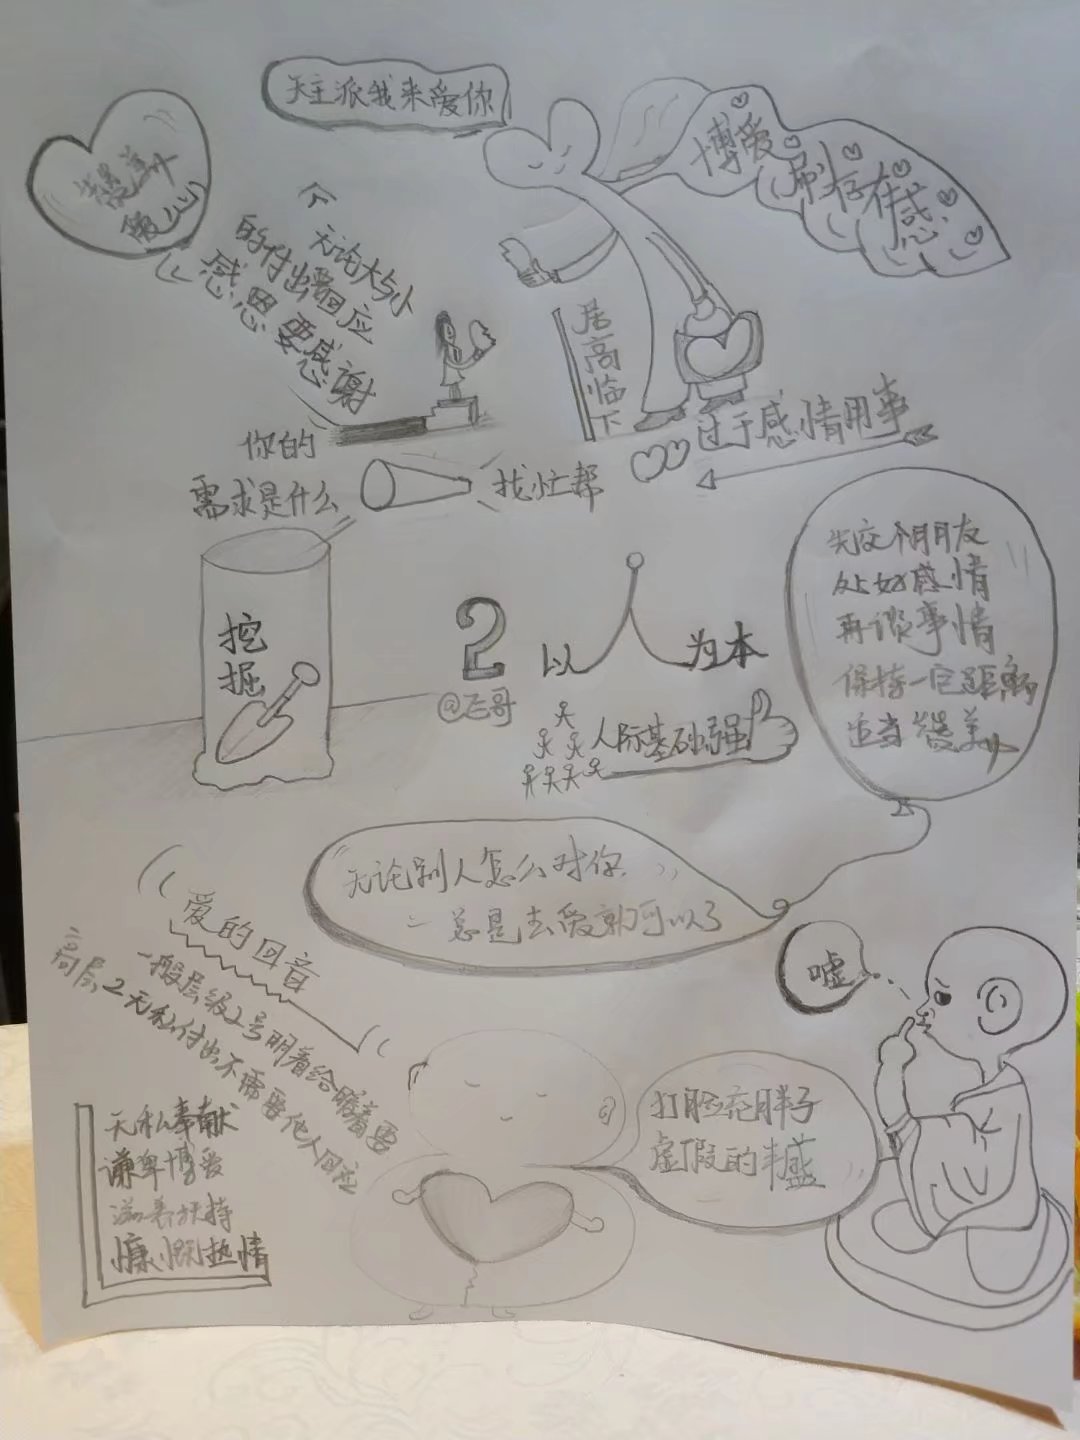 天主派我来爱你
赞美
博爱
刷存在感
无论大与小
的付出要回应
感恩要感谢
居高临下
过于感情用事
你的
需求是什么
找忙帮
挖
掘
2
@飞哥
以人为本
人际基础强
先交个朋友
处好感情
再谈事情
保持一定距离
适当赞美
无论别人怎么对你
二总是去爱就可以了
爱的回音
一般层级2号明着给暗着要
高层2无私付出不需要他人回应
嘘
打肿脸充胖子
虚假的丰盛
无私奉献
谦卑博爱
滋养扶持
慷慨热情